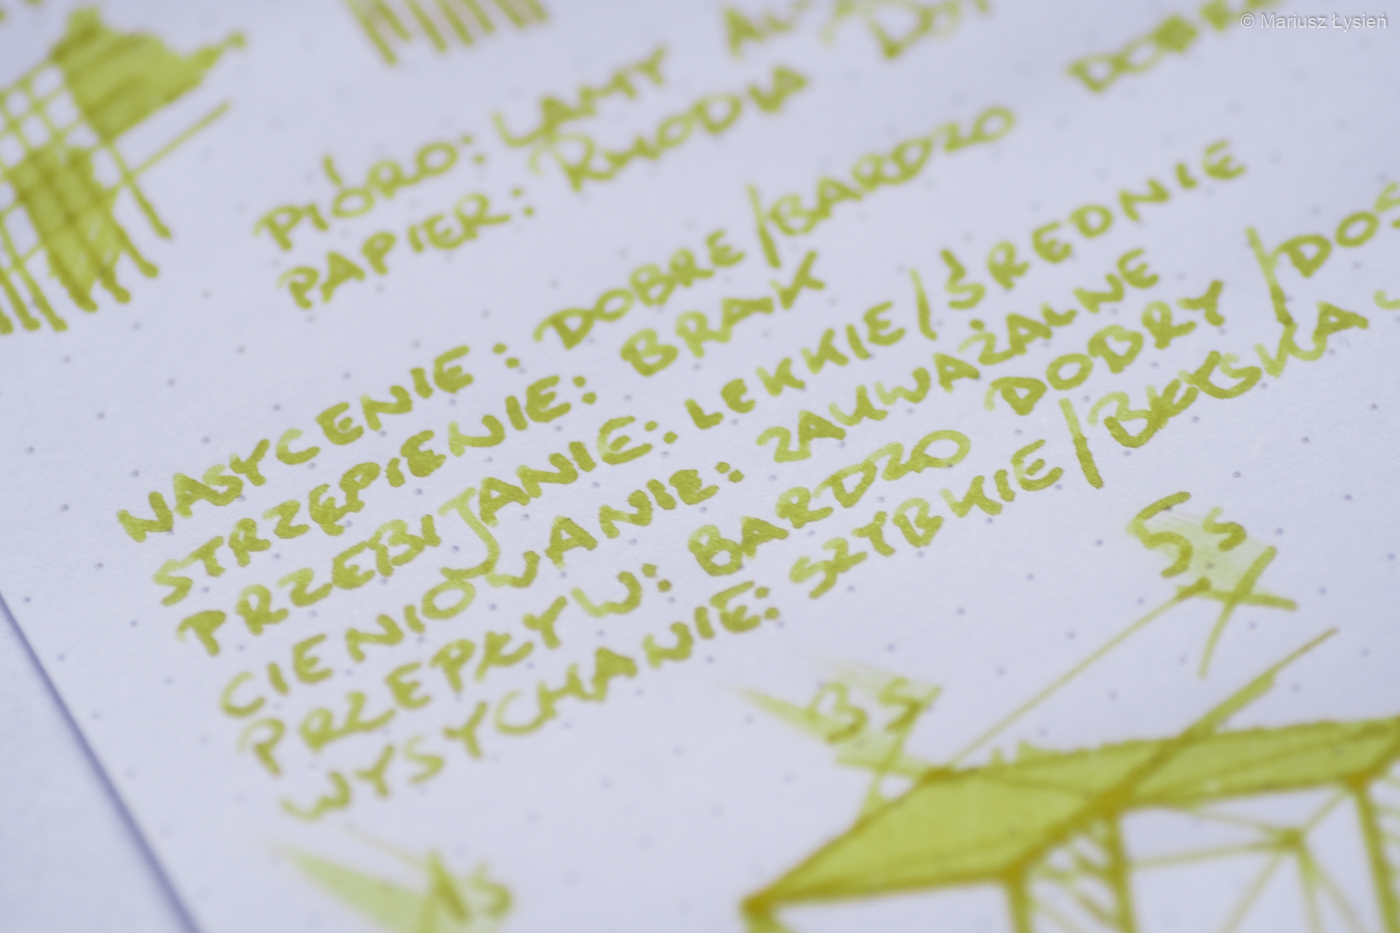 © Mariusz Łysień
PIÓRO: LAMY
PAPIER: RHODIA
NASYCENIE: DOBRE/BARDZO
STRZĘPIENIE: BRAK
PRZEBIJANIE: LEKKIE/ŚREDNIE
CIENIOWANIE: ZAUWAŻALNE
PRZEPŁYW: BARDZO DOBRY/
WYSYCHANIE: SZYBKIE/
5s
3s
1s